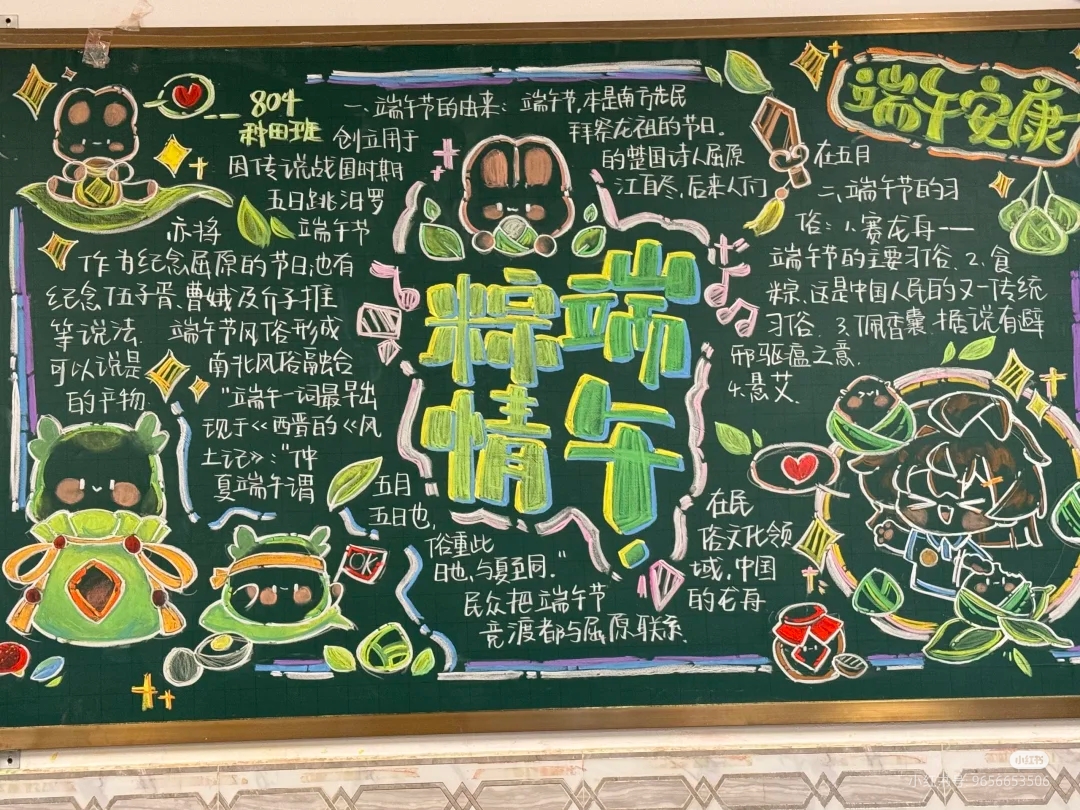 804
科田班
一、端午节的由来：端午节，本是南方先民
创立用于
拜祭龙祖的节日。
因传说战国时期
的楚国诗人屈原
在五月
五日跳汨罗
江自尽，后来人们
亦将
端午节
作为纪念屈原的节日；也有
纪念伍子胥、曹娥及介子推
等说法。端午节风俗形成
可以说是
南北风俗融合
的产物.
"端午一词最早出
现于<<西晋的<<风
土记>>："仲
夏端午谓
五月
五日也，
俗重此
日也，与夏至同。"
端午安康
二、端午节的习
俗：1.赛龙舟——
端午节的主要习俗。2.食
粽.这是中国人民的又一传统
习俗. 3.佩香囊.据说有避
邪驱瘟之意.
4.悬艾.
端午
粽情
OK
在民
俗文化领
域，中国
民众把端午节
的龙舟
竞渡都与屈原联系.
小红书
小红书号 9656653506